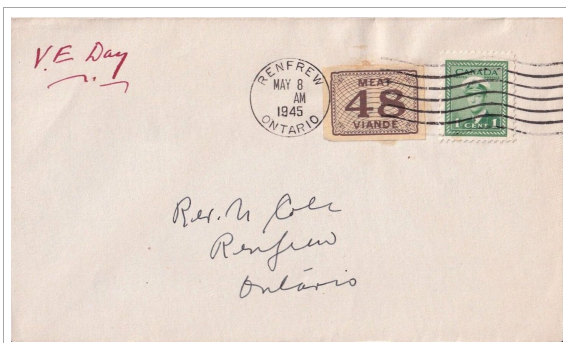 V.E. Day
RENFREW
MAY 8
AM
1945
ONTARIO
MEAT
48
VIANDE
CANADA
1 CENT 1
Rev. N Cole
Renfrew
Ontario